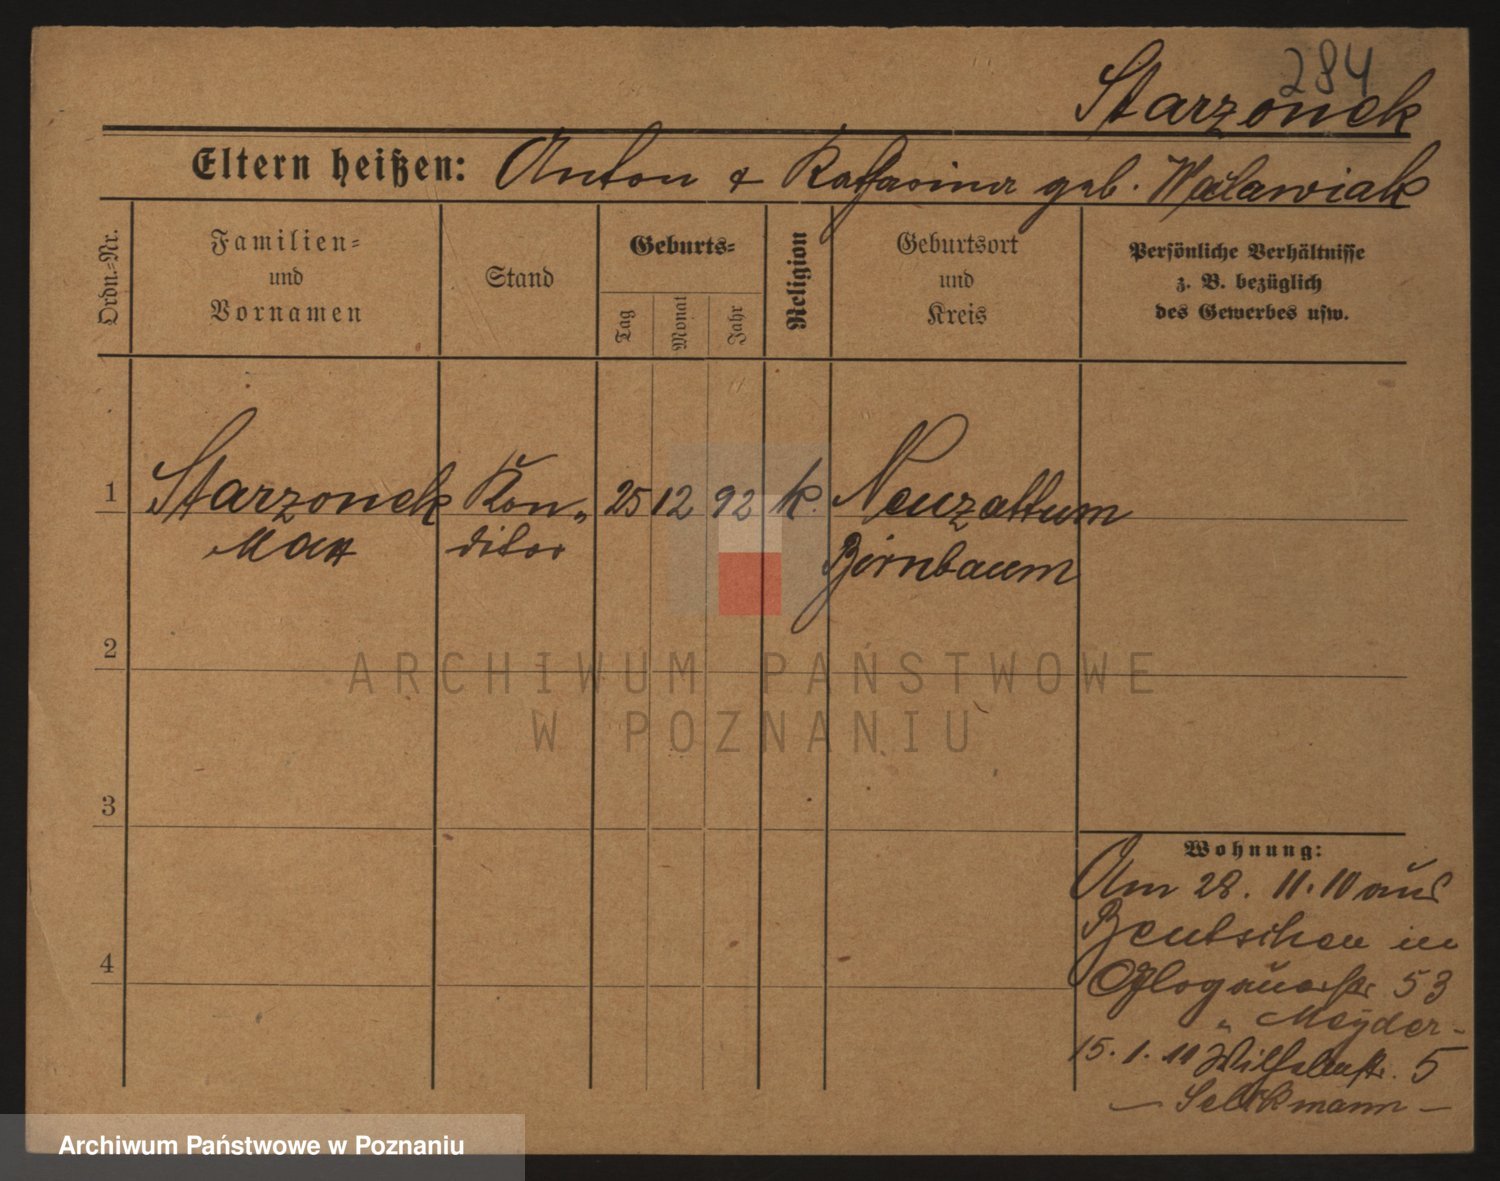 284
Starzonek
Eltern heißen: Anton & Katharina geb. Walawiak
Ordn.-Nr.
Familien-
und
Vornamen
Stand
Geburts-
Tag
Monat
Jahr
Religion
Geburtsort
und
Kreis
Persönliche Verhältnisse
z. B. bezüglich
des Gewerbes usw.
1 Starzonek Kon- 25 12 92 k. Neuzattum
Max ditor Birnbaum
2
ARCHIWUM PAŃSTWOWE
W POZNANIU
3
Wohnung:
Am 28. 11. 10 aus
Bentschen in
4
Glogauerstr 53
" Meyder-
15. 1. 11 Wilhelmstr. 5
— mann —
Archiwum Państwowe w Poznaniu